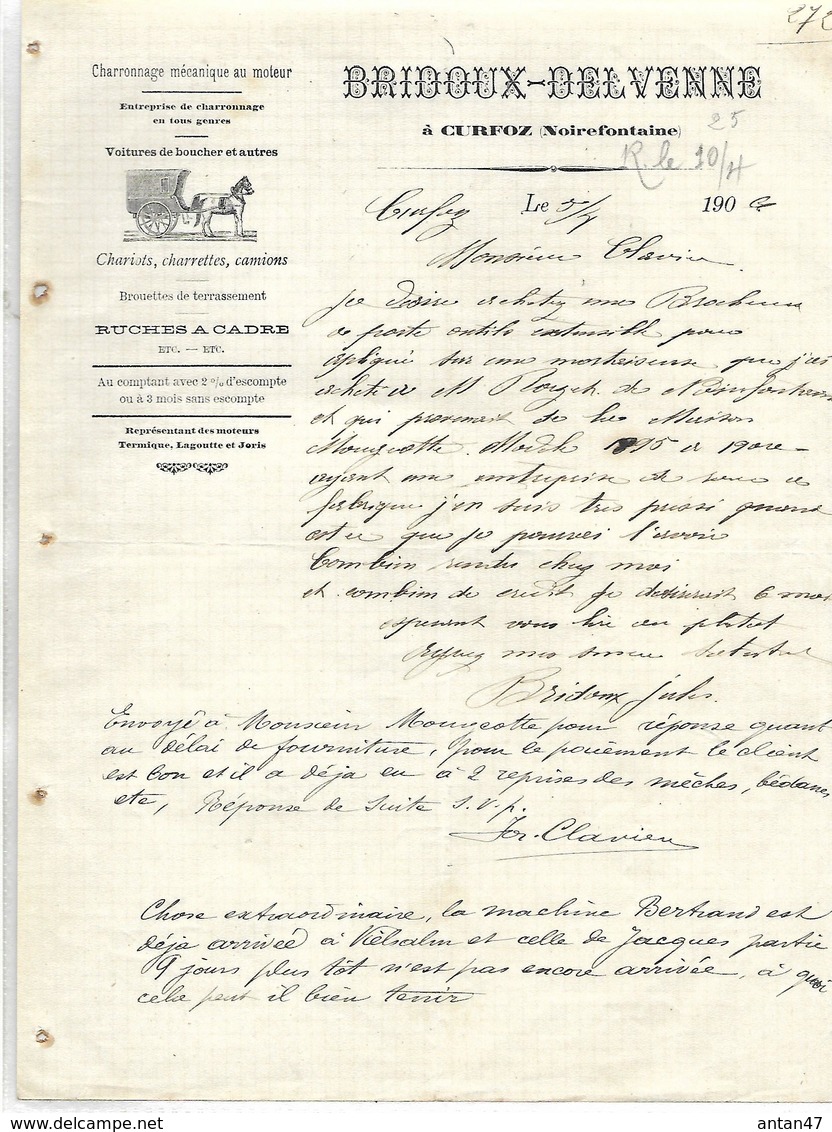 272
Charronnage mécanique au moteur
Entreprise de charronnage
en tous genres
Voitures de boucher et autres
Chariots, charrettes, camions
Brouettes de terrassement
RUCHES A CADRE
ETC. — ETC.
Au comptant avec 2 % d'escompte
ou à 3 mois sans escompte
Représentant des moteurs
Termique, Lagoutte et Joris
BRIDOUX-DELVENNE
à CURFOZ (Noirefontaine)
25
R. le 10/4
Curfoz Le 190
Monsieur Clavier
Je désire acheter une
de porte outils pour
apliqué sur une morteiseuse que j'ai
acheté a M de
et qui provenait de la Maison
Mougeotte. Modèle 1895 a
ayant une entreprise de
fabrique j'en suis très pressé quand
est ce que je pourrai l'avoir
Combien rendu chez moi
et combien de credit je desirerait 6 moi
esperant vous lire au plutot
mes
Bridoux Jules
Envoyé à Monsieur Mougeotte pour réponse quant
au délai de fourniture, pour le paiement le client
est bon et il a déja eu à 2 reprises des mêches, bédanes
etc, Réponse de Suite S.V.p.
Jos. Clavier
Chose extraordinaire, la machine Bertrand est
déja arrivée à Vielsalm et celle de Jacques partie
9 jours plus tôt n'est pas encore arrivée, à quoi
cela peut il bien tenir
delcampe.net
antan47